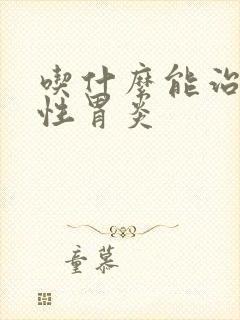 喫什麼能治
性胃炎
童慕